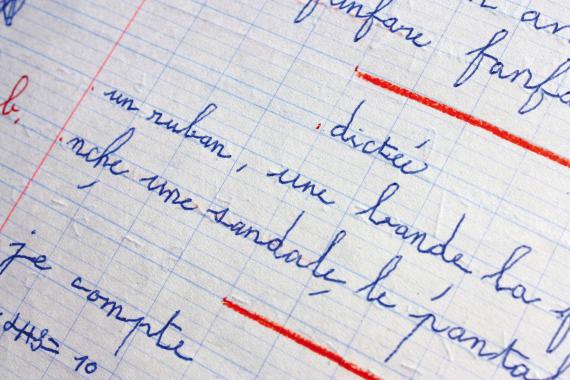 fanfare fanf
dictée
b. un ruban, une bande la f
nche une sandale, le panta
je compte
= 10